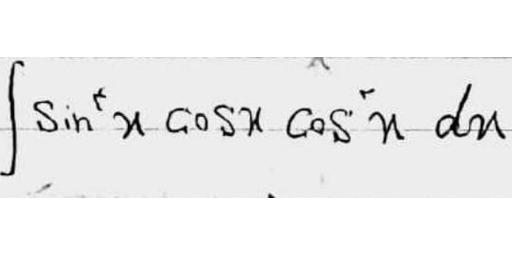 ∫ sin²x cosx cos²x dx